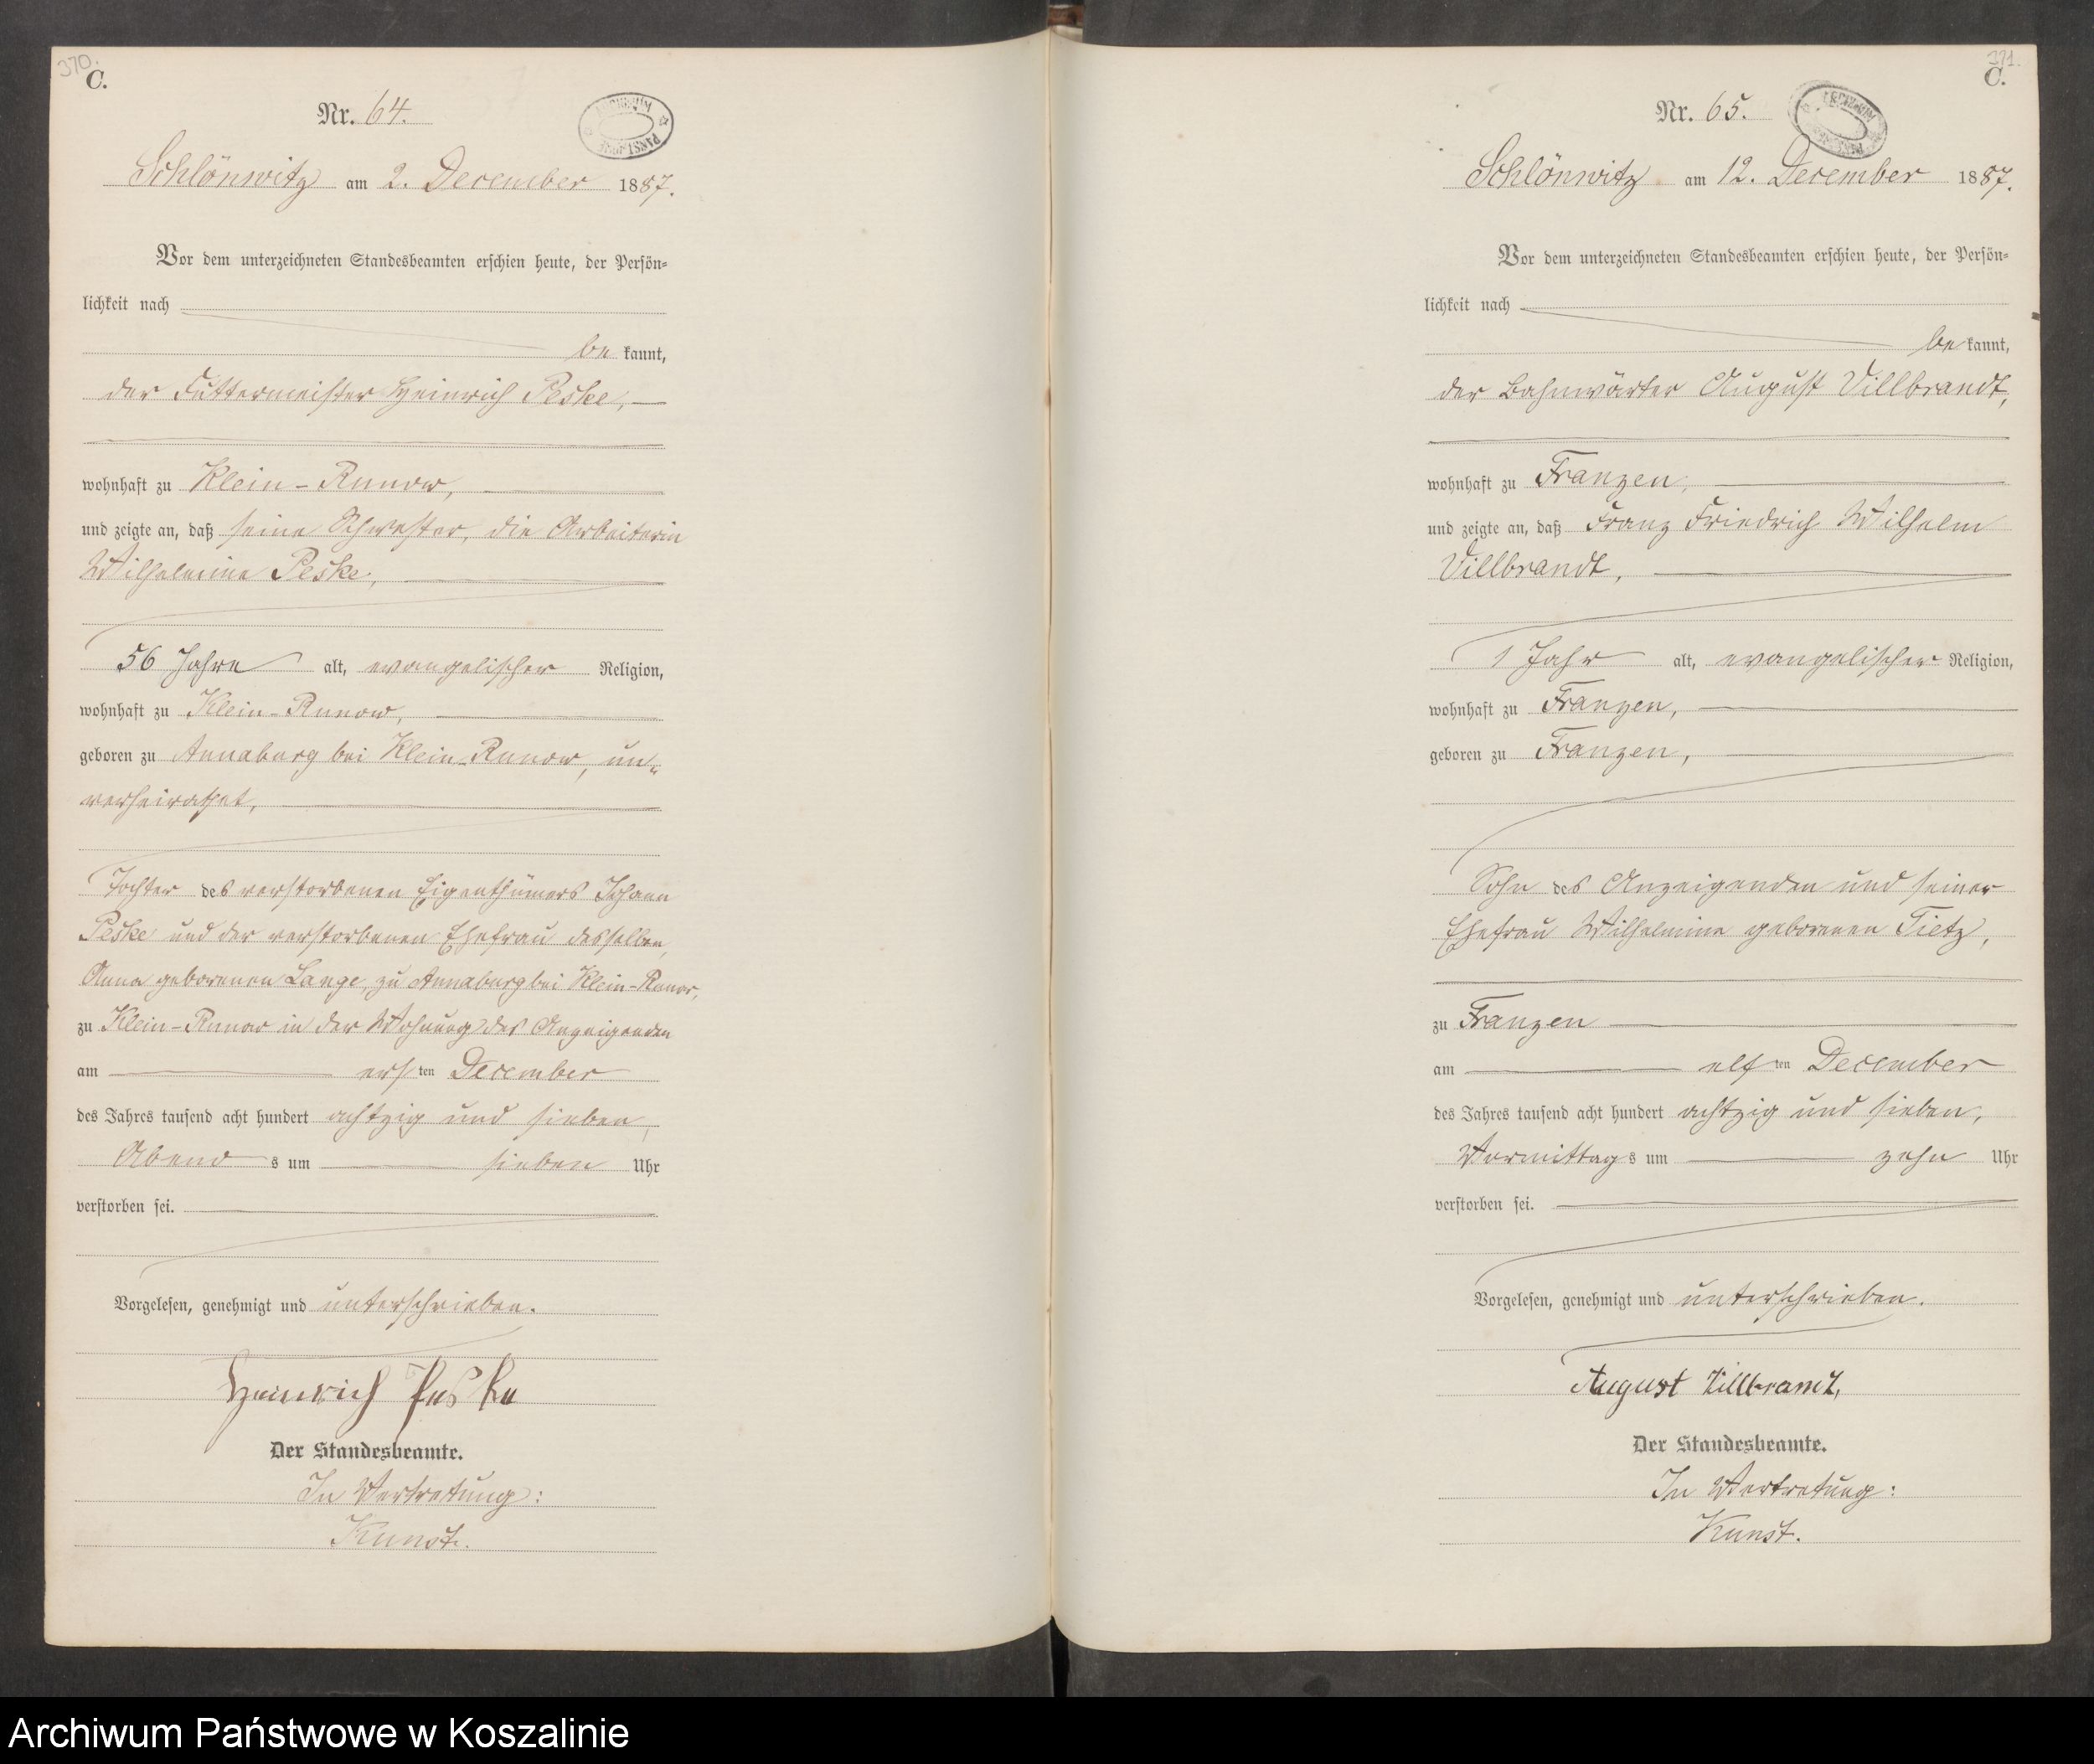 370.
C.
Nr. 64.
Schlönwitz am 2. December 1887.
Vor dem unterzeichneten Standesbeamten erschien heute, der Persön-
lichkeit nach
be kannt,
der Futtermeister Heinrich Peske,
wohnhaft zu Klein-Runow,
und zeigte an, daß seine Schwester, die Arbeiterin
Wilhelmine Peske,
56 Jahre alt, evangelischer Religion,
wohnhaft zu Klein-Runow,
geboren zu Annaburg bei Klein-Runow, un-
verheirathet,
Tochter des verstorbenen Eigenthümers Johann
Peske und der verstorbenen Ehefrau desselben,
Anna geborenen Lange, zu Annaburg bei Klein-Runow,
zu Klein-Runow in der Wohnung des Anzeigenden
am ersten December
des Jahres tausend acht hundert achtzig und sieben,
Abends um sieben Uhr
verstorben sei.
Vorgelesen, genehmigt und unterschrieben.
Heinrich Peske
Der Standesbeamte.
In Vertretung:
Kunst.
371.
C.
Nr. 65.
Schlönwitz am 12. December 1887.
Vor dem unterzeichneten Standesbeamten erschien heute, der Persön-
lichkeit nach
be kannt,
der Bahnwärter August Villbrandt,
wohnhaft zu Franzen,
und zeigte an, daß Franz Friedrich Wilhelm
Villbrandt,
1 Jahr alt, evangelischer Religion,
wohnhaft zu Franzen,
geboren zu Franzen,
Sohn des Anzeigenden und seiner
Ehefrau Wilhelmine geborenen Tietz,
zu Franzen
am elften December
des Jahres tausend acht hundert achtzig und sieben,
Vormittags um zehn Uhr
verstorben sei.
Vorgelesen, genehmigt und unterschrieben.
August Villbrandt,
Der Standesbeamte.
In Vertretung:
Kunst.
Archiwum Państwowe w Koszalinie